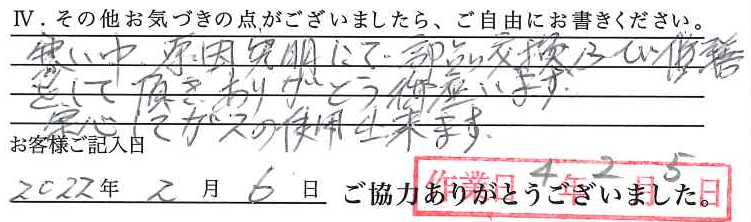 Ⅳ．その他お気づきの点がございましたら、ご自由にお書きください。
寒い中 原因究明にて 部品交換及び修繕
をして頂きありがとう御座います。
安心してガスの使用出来ます。
お客様ご記入日
2022年 2月 6日 ご協力ありがとうございました。
作業日 4年2月5日